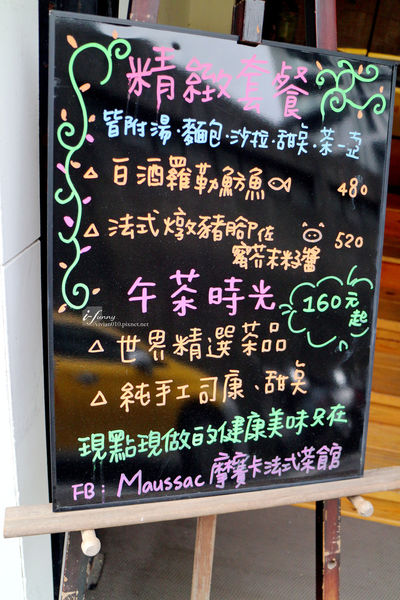 精緻套餐
皆附湯·麵包·沙拉·甜桌·茶一壺
△白酒羅勒魴魚 480
△法式燉豬腳佐 520
蜜芥末籽醬
午茶時光
160元起
△世界精選茶品
△純手工司康、甜桌
現點現做的健康美味只在
FB: Maussac 摩賽卡法式茶館
i-funny
vivian010.pixnet.net